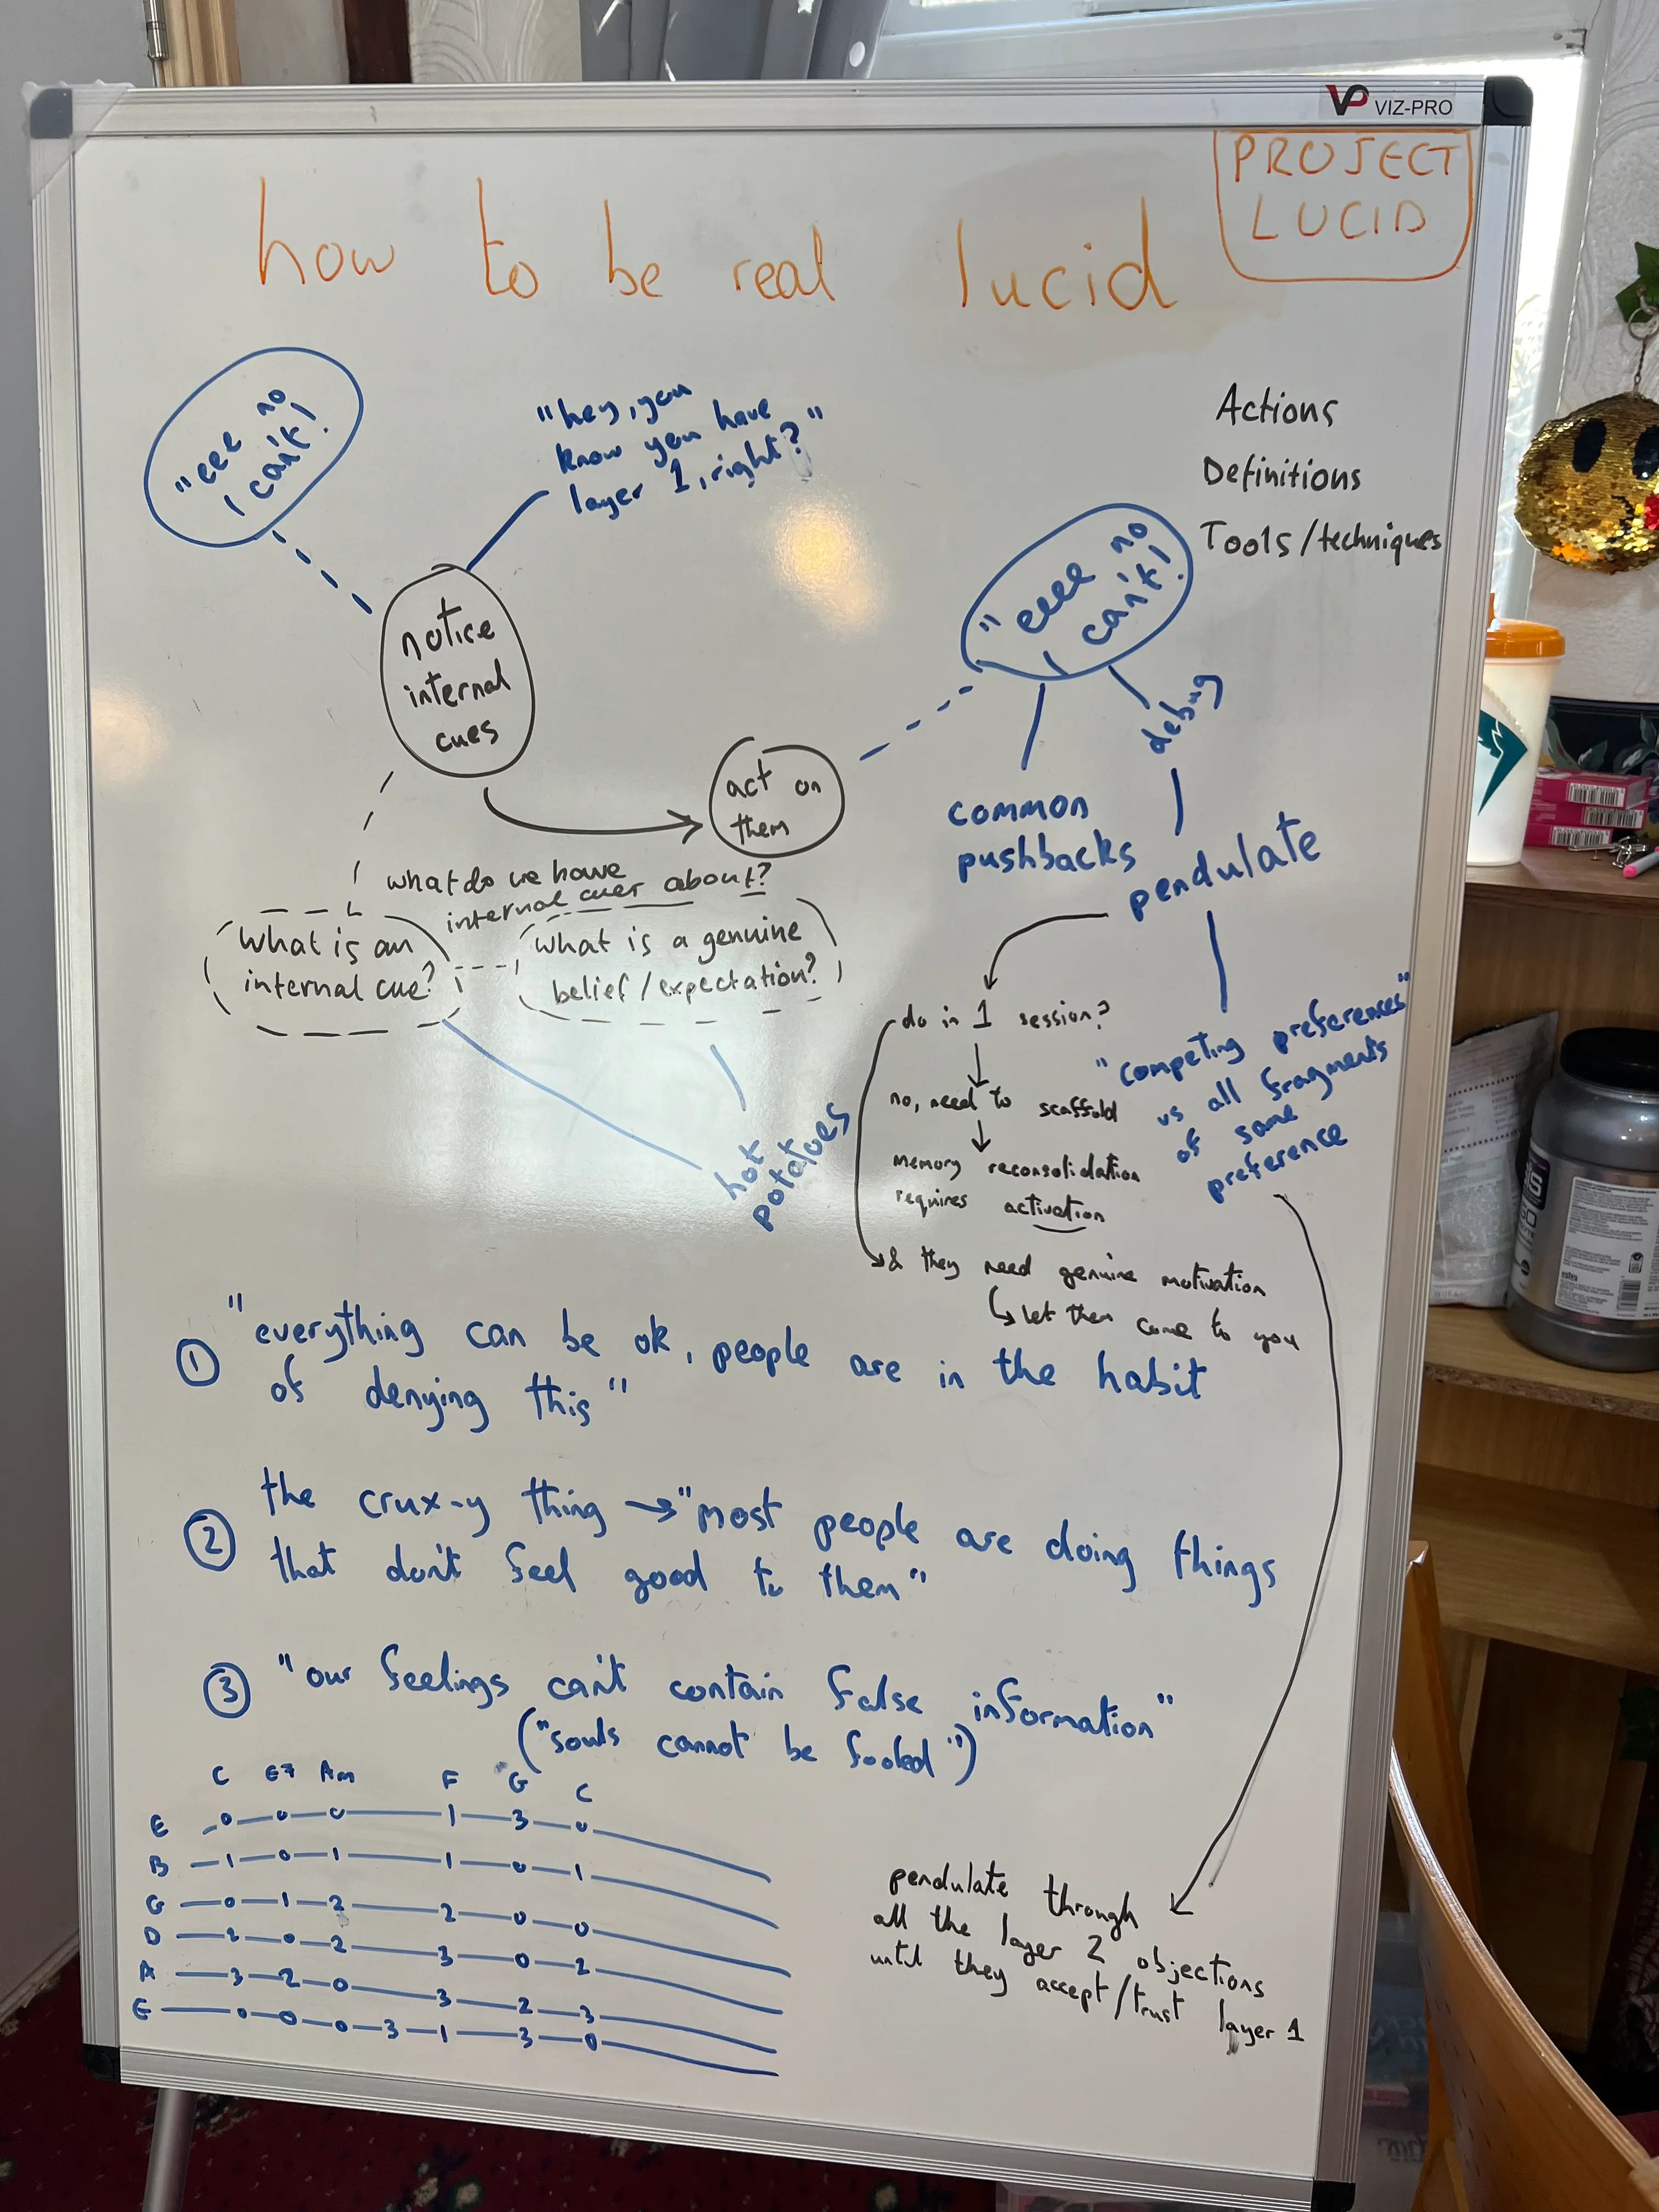 VP VIZ-PRO
PROJECT
LUCID
how to be real lucid
"eee no
I can't!
"hey, you
know you have
layer 1, right?"
Actions
Definitions
Tools/techniques
notice
internal
cues
"eeee no
I can't!
debug
act on
them
common
pushbacks
pendulate
what do we have
internal cues about?
what is an
internal cue?
what is a genuine
belief/expectation?
hot
potatoes
do in 1 session?
no, need to scaffold
memory reconsolidation
requires activation
& they need genuine motivation
let them come to you
"competing preferences"
vs all fragments
of same
preference
① "everything can be ok, people are in the habit
of denying this"
② the crux-y thing → "most people are doing things
that don't feel good to them"
③ "our feelings can't contain false information"
("souls cannot be fooled")
C E7 Am F G C
E 0 0 0 1 3 0
B 1 0 1 1 0 1
G 0 1 2 2 0 0
D 2 0 2 3 0 2
A 3 2 0 3 2 3
E 0 0 0 3 1 3 0
pendulate through
all the layer 2 objections
until they accept/trust layer 1